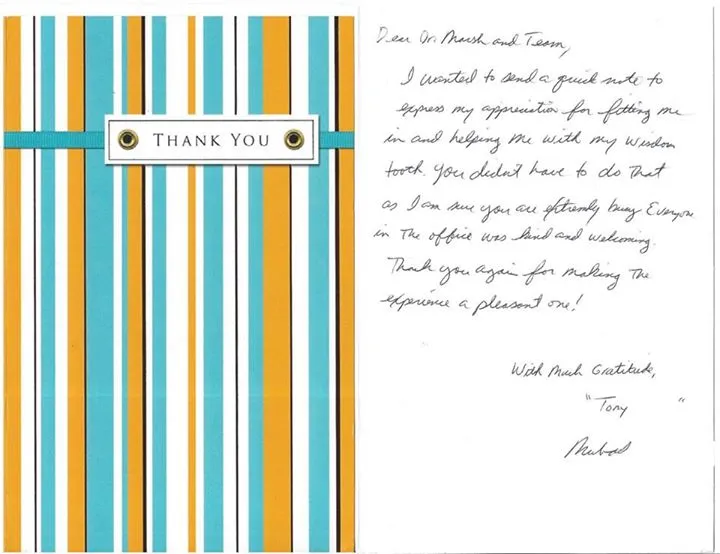 THANK YOU
Dear Dr. Marsh and Team,
I wanted to send a quick note to
express my appreciation for fitting me
in and helping me with my wisdom
tooth. You didn't have to do that
as I am sure you are extremely busy. Everyone
in the office was kind and welcoming.
Thank you again for making the
experience a pleasant one!
With Much Gratitude,
"Tony "